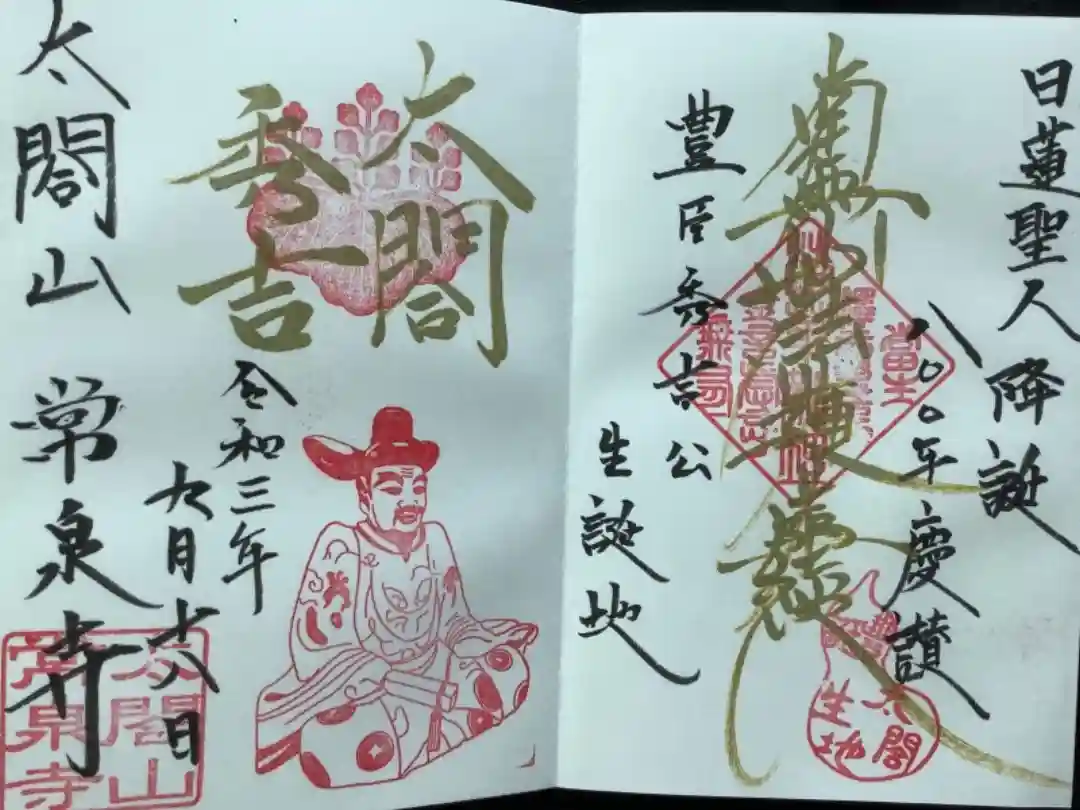 日蓮聖人降誕
八〇〇年慶讃
南無妙法蓮華経
豊臣秀吉公
生誕地
太閤
秀吉
令和三年
九月十八日
太閤山常泉寺
太閤山
常泉寺
太閤
生地